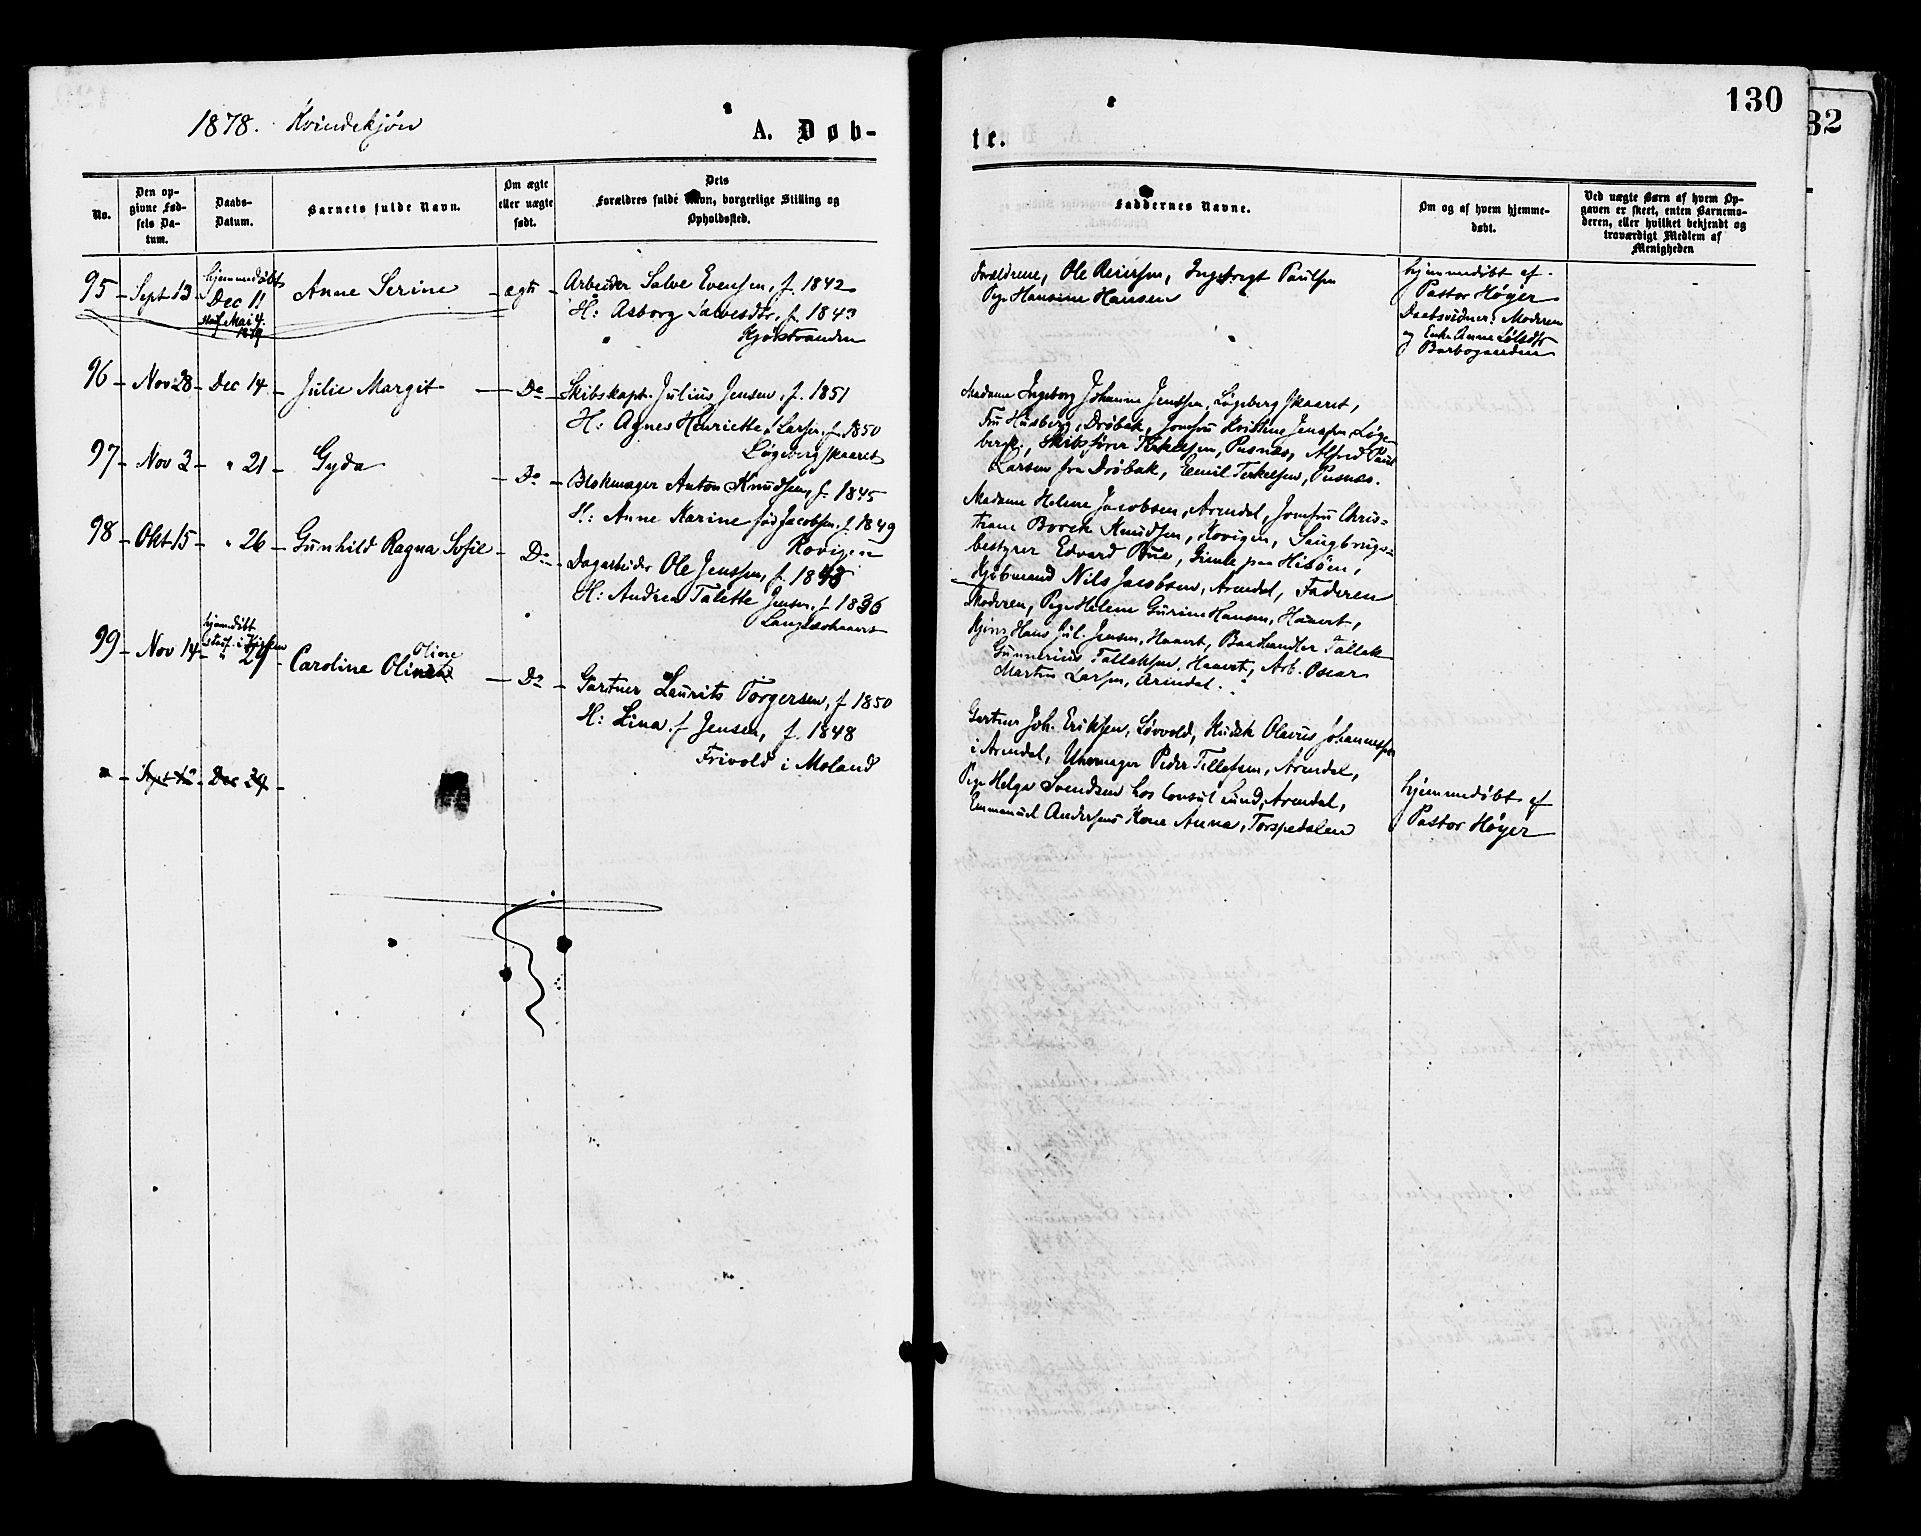 1878. Kvindekjøn
A. Døb-
No.
Den op-
givne Fød-
sels Da-
tum.
Daabs-
Datum.
Barnets fulde Navn.
Om ægte
eller uægte
født.
Dets
Forældres fulde Navn, borgerlige Stilling og
Opholdsted.
95 Sept 13 hjemmedøbt
Dec 11
Mai 4
1879
Anne Serine
ægte
Arbeider Salve Evensen, f. 1842
H: Asborg Salvesdtr, f. 1843
96 Nov 28 Dec 14 Julie Margit Do
Skibskapt. Julius Jensen, f. 1851
H: Agnes Henriette f Larsen, f. 1850
Løgeberg skaaret
97 Nov 2 " 21 Gyda Do
Blokmager Anton Knudsen, f. 1845
H: Anne Karine fød Jacobsen, f. 1849
98 Okt 15 " 26 Gunhild Ragna Sofie Do
Dagarbeider Ole Jenssen, f. 1843
H: Andrea Talette Jensen, f. 1836
99 Nov 14 hjemdøbt
" 29
Caroline Oline
Do
Gartner Laurits Torgersen, f. 1850
H: Lina f Jensen, f. 1848
Frivold i Moland
Dec 29
130
32
te.
Faddernes Navne.
Om og af hvem hjemme-
døbt.
Ved uægte Børn af hvem Op-
gaven er skeet, enten Barnemo-
deren, eller hvilket bekjendt og
troværdigt Medlem af
Menigheden
Forældrene, Ole Reiersen, Ingeborgt Paulsen
Pige Hansine Hansen
hjemmedøbt af
Pastor Høyer
Daabsvidner: Moderen
og Enke Anne
Madame Ingeborg Johanne Jenssen, Løgeberg skaaret,
Fru Husberg, Drøbak, Jomfru Kristine Jenssen, Løge-
berg, Skibsfører Terkelsen, Pusnæs, Alfred Paul
Larsen fra Drøbak, Emil Terkelsen, Pusnæs.
Madame Helene Jacobsen, Arendal, Jomfru Chris-
tiane Knudsen, Saugbrugs-
bestyrer Edvard paa Hisøen,
Kjøbmand Nils Jacobsen, Arendal, Faderen
Moderen, Pige Helene Gurine Hansen, Haavet,
Hans Jul. Jensen, Haavet, Tallak
Gunnerius Tallaksen, Haavet, Arb. Oscar
Martin Larsen, Arendal.
Gartner Joh. Eriksen, Løvvold, Olavus Johannessen
i Arendal, Uhrmager Peder Tellefsen, Arendal,
Pige Helga Svendsen hos Consul Lund, Arendal,
Emmanuel Andersens Kone Anna, Torspedalen
hjemmedøbt af
Pastor Høyer